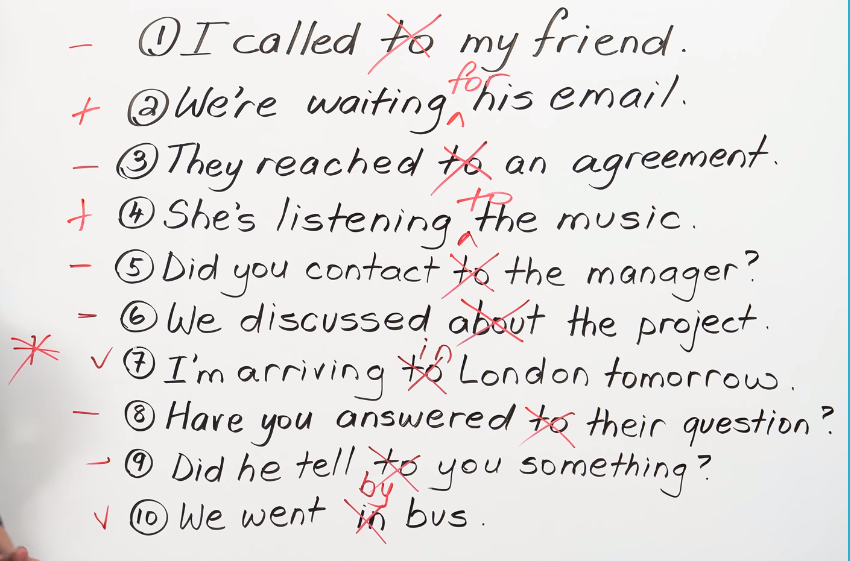 - ① I called to my friend.
for
+ ② We're waiting ^ his email.
- ③ They reached to an agreement.
to
+ ④ She's listening ^ the music.
- ⑤ Did you contact to the manager?
- ⑥ We discussed about the project.
in
* ✓ ⑦ I'm arriving to London tomorrow.
- ⑧ Have you answered to their question?
- ⑨ Did he tell to you something?
by
✓ ⑩ We went in bus.